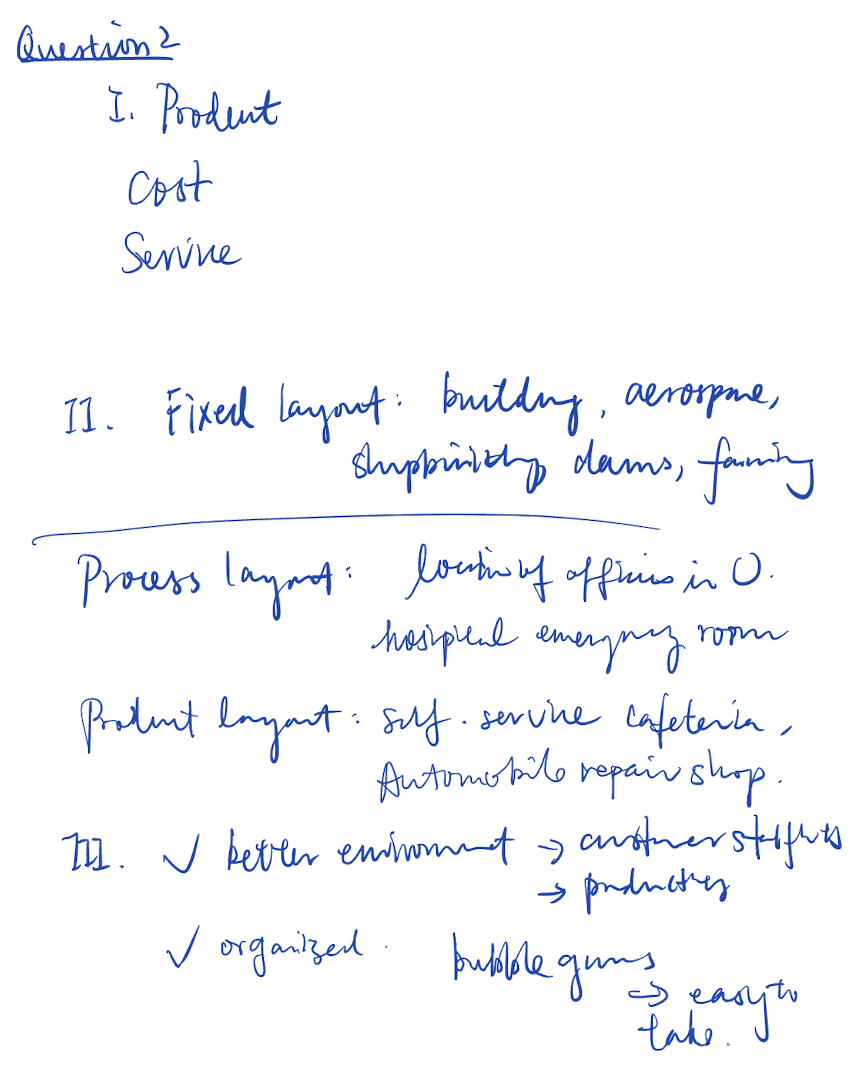 Question 2
I. Product
Cost
Service
II. Fixed layout: building, aerospace,
shipbuilding dams, farming
Process layout: location of offices in U.
hospical emergency room
Product layout: self-service cafeteria,
Automobile repair shop.
III. ✓ better environment → customer
→ productivity
✓ organized. bubble gums
→ easy to
take.